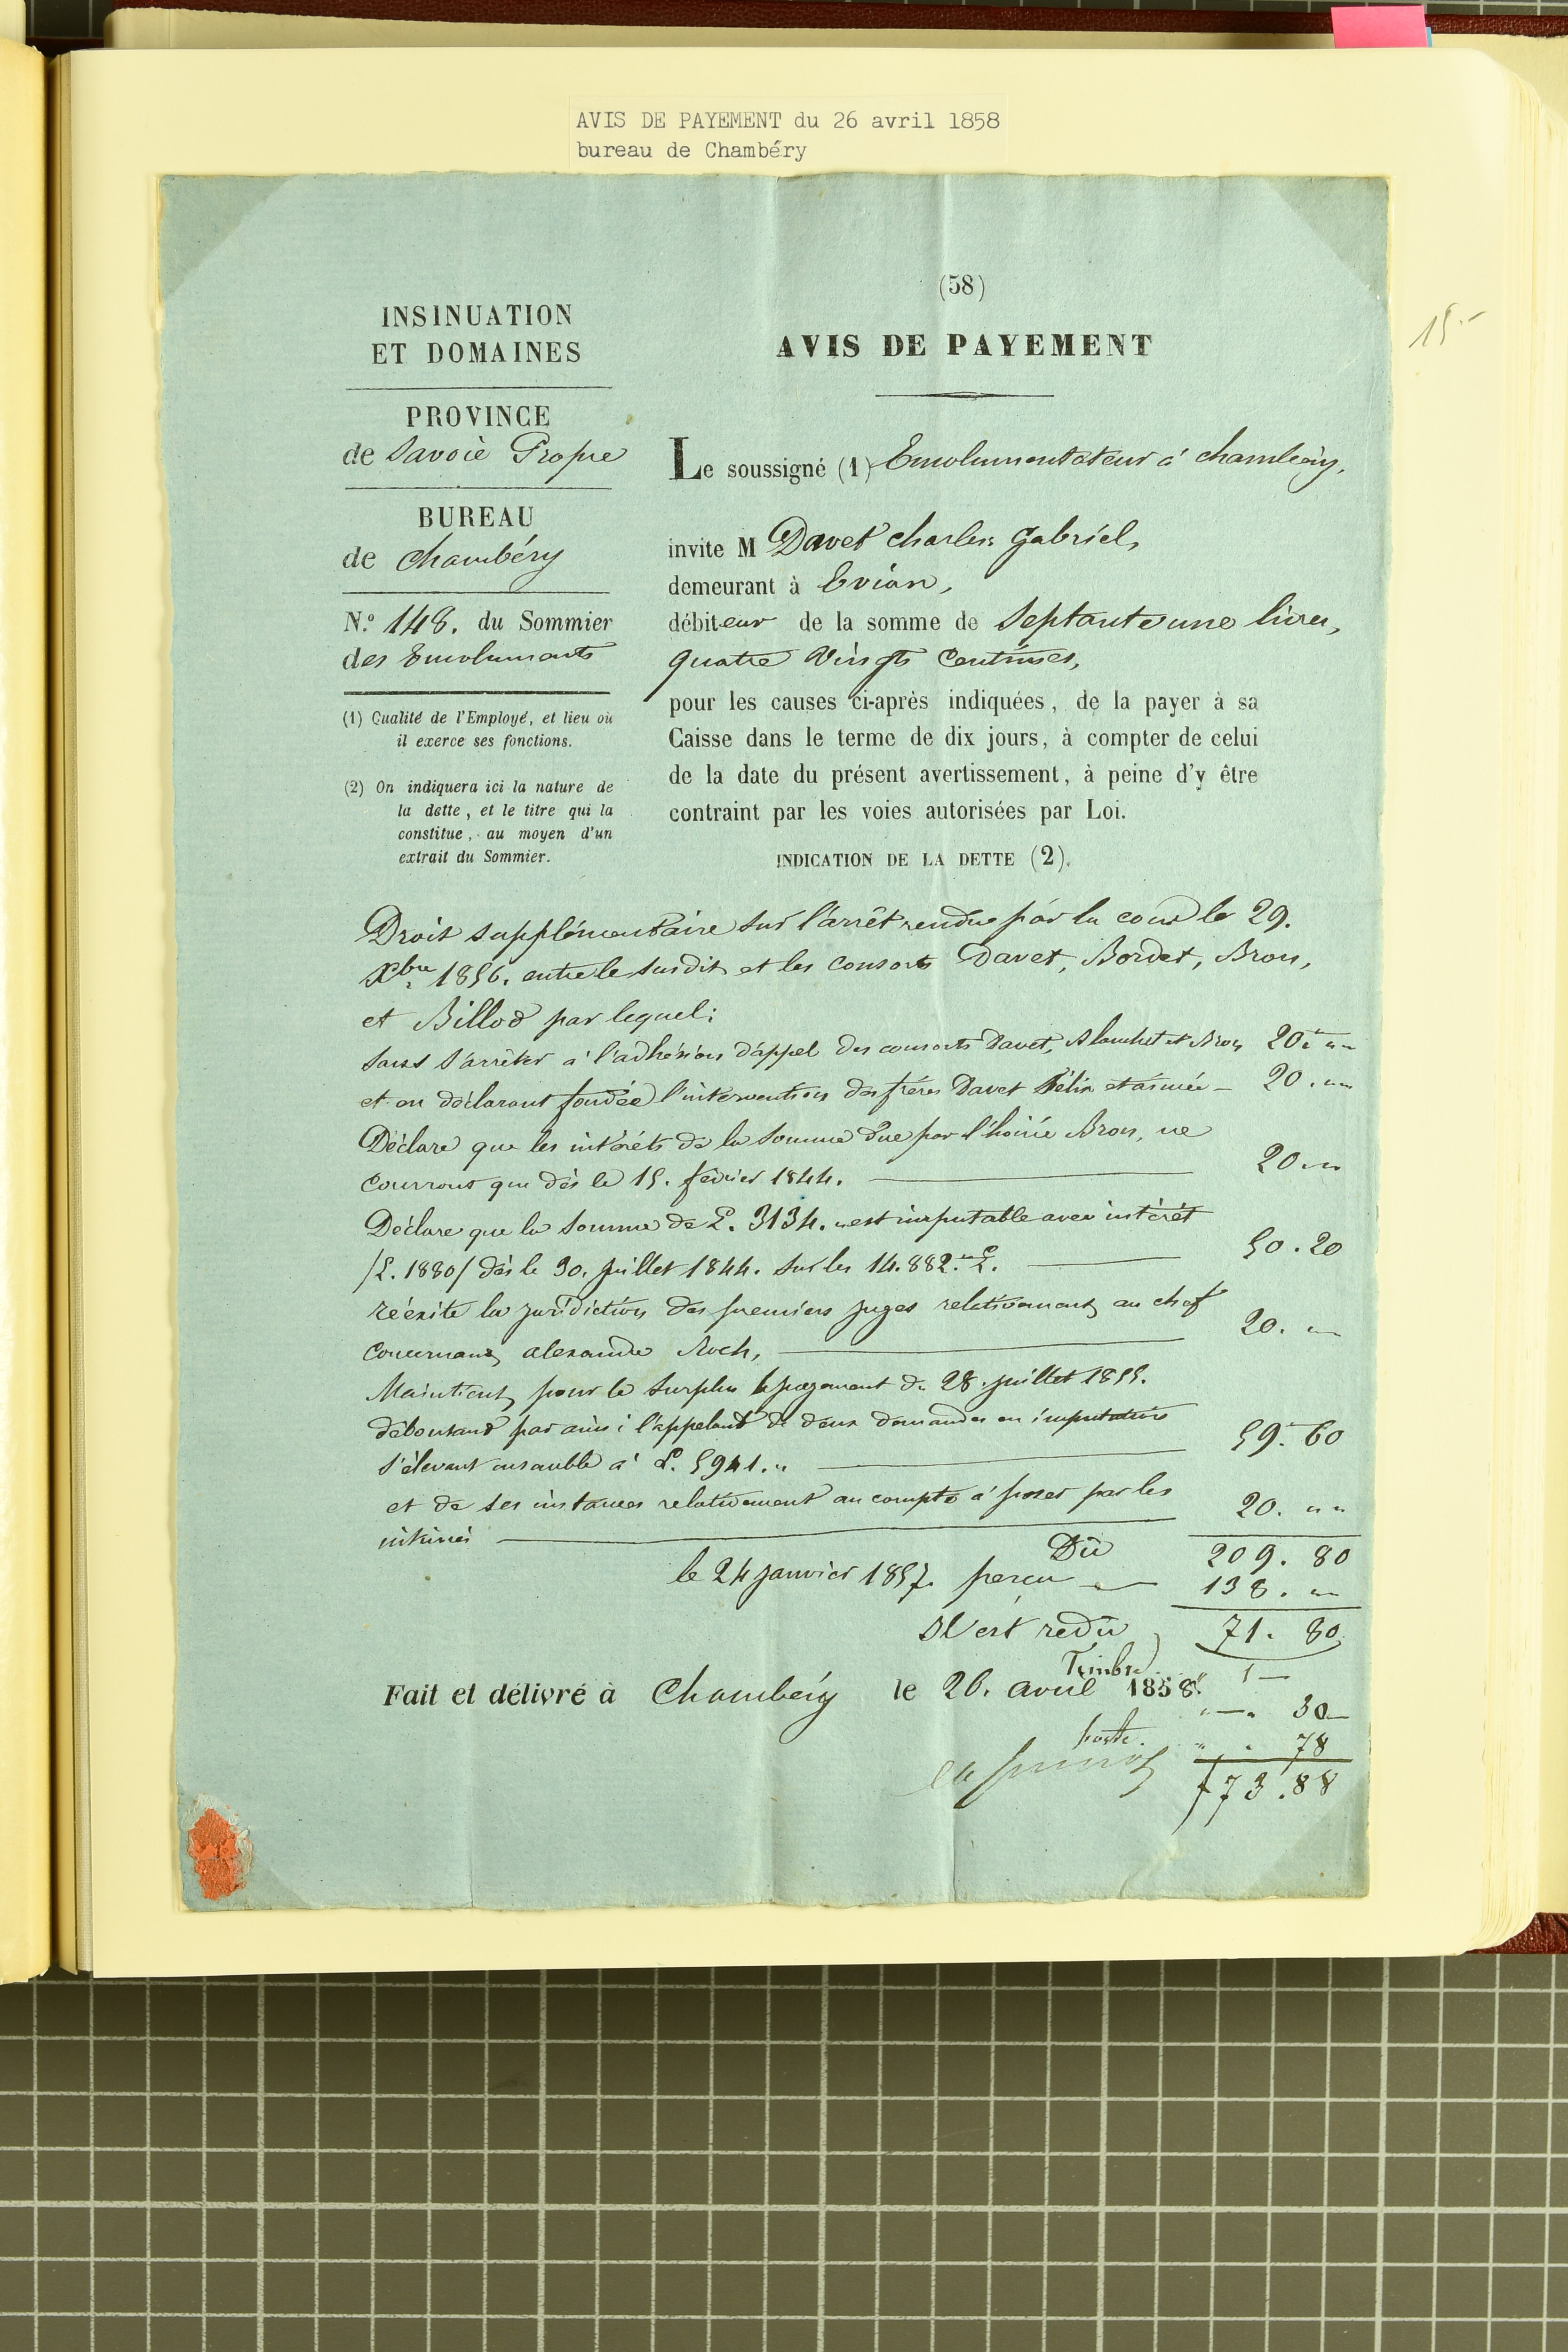 AVIS DE PAYEMENT du 26 avril 1858
bureau de Chambéry
15.-
(58)
INSINUATION
ET DOMAINES
PROVINCE
de Savoie Propre
BUREAU
de Chambéry
N.º 148. du Sommier
des Emoluments
(1) Qualité de l'Employé, et lieu où
il exerce ses fonctions.
(2) On indiquera ici la nature de
la dette, et le titre qui la
constitue, au moyen d'un
extrait du Sommier.
AVIS DE PAYEMENT
Le soussigné (1) Emolumentateur à Chambéry,
invite M Davet Charles Gabriel,
demeurant à Evian,
débiteur de la somme de Septante une livres,
quatre vingts Centimes,
pour les causes ci-après indiquées, de la payer à sa
Caisse dans le terme de dix jours, à compter de celui
de la date du présent avertissement, à peine d'y être
contraint par les voies autorisées par Loi.
INDICATION DE LA DETTE (2).
Droit supplémentaire sur l'arrêt rendu par la cour le 29.
Xbre 1856. entre le susdit et les consorts Davet, Bordet, Bron,
et Billod par lequel:
sans s'arrêter à l'adhésion d'appel des consorts Davet, Blanchet et Bron 20. "
et en déclarant fondée l'intervention des frères Davet Félix et aimée - 20. "
Déclare que les intérêts de la somme due par l'hoirie Bron, ne
Courront que dès le 15. février 1844. 20. "
Déclare que la somme de L. 3134. " est imputable avec intérêt
/L. 1880/ dès le 30. juillet 1844. sur les 14.882. L. 50.20
réexite la juridiction des premiers juges relativement au chef
Concernant alexandre Roch, 20. "
Maintient pour le surplus le jugement du 28. juillet 1855.
déboutant par ainsi l'appelant de deux demandes en imputation
s'élevant ensemble à L. 5941. " 59.60
et de ses instances relativement au compte à poser par les
intimés 20. "
Dû 209. 80
le 24 janvier 1857. perçu 138. "
Il est redû 71. 80
Timbre 1 —
Fait et délivré à Chambéry le 26. avril 1858.
" — " 30 —
poste. " . 78
73.88